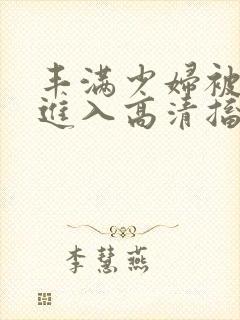 丰满少妇被
进入高清搐
李慧燕